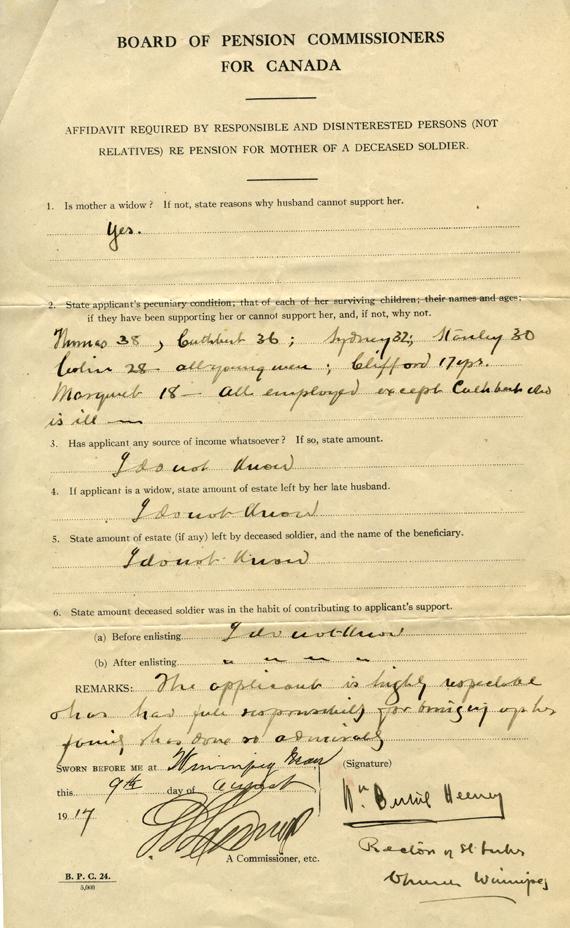 BOARD OF PENSION COMMISSIONERS
FOR CANADA
AFFIDAVIT REQUIRED BY RESPONSIBLE AND DISINTERESTED PERSONS (NOT
RELATIVES) RE PENSION FOR MOTHER OF A DECEASED SOLDIER.
1. Is mother a widow? If not, state reasons why husband cannot support her.
Yes.
2. State applicant's pecuniary condition; that of each of her surviving children; their names and ages;
if they have been supporting her or cannot support her, and, if not, why not.
Thomas 38, Cuthbert 36; Sydney 32; Stanley 30
Colin 28 - all young men; Clifford 17 yrs.
Margaret 18 - All employed except Cuthbert who
is ill
3. Has applicant any source of income whatsoever? If so, state amount.
I do not know
4. If applicant is a widow, state amount of estate left by her late husband.
I do not know
5. State amount of estate (if any) left by deceased soldier, and the name of the beneficiary.
I do not know
6. State amount deceased soldier was in the habit of contributing to applicant's support.
(a) Before enlisting I do not know
(b) After enlisting " " " "
REMARKS: The applicant is highly respectable
& has had full responsibility for bringing up her
family & has done so admirably
SWORN BEFORE ME at Winnipeg Man
this 9th day of August
1917
A Commissioner, etc.
(Signature)
Wm Bertal Heeney
Rector of St Lukes
Church Winnipeg
B. P. C. 24.
5,000